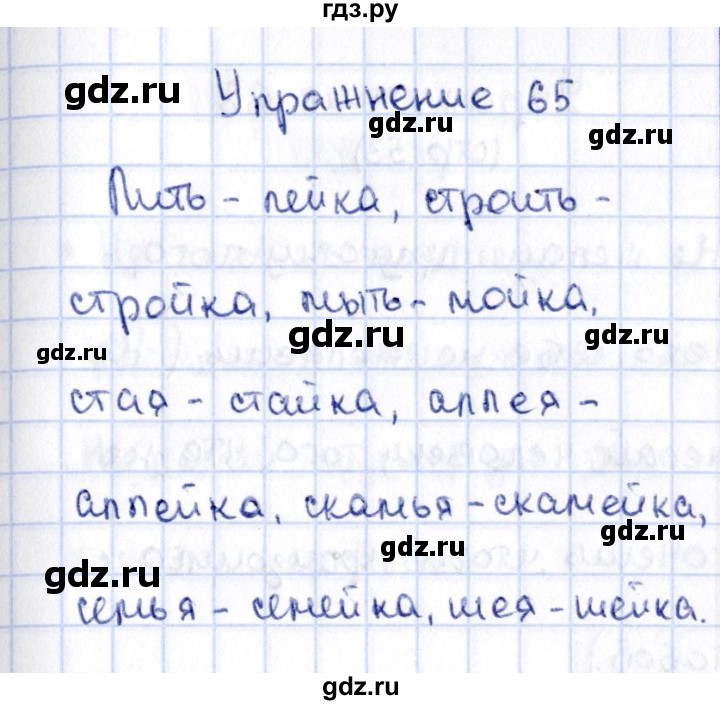 гдз.ру
gdz.ru
Упражнение 65
gdz.ru
gdz.ru
Пить - пейка, строить -
стройка, мыть - мойка,
gdz.ru
gdz.ru
gdz.ru
стая - стайка, аллея -
аллейка, скамья - скамейка,
gdz.ru
gdz.ru
gdz.ru
семья - семейка, шея - шейка.
gdz.ru